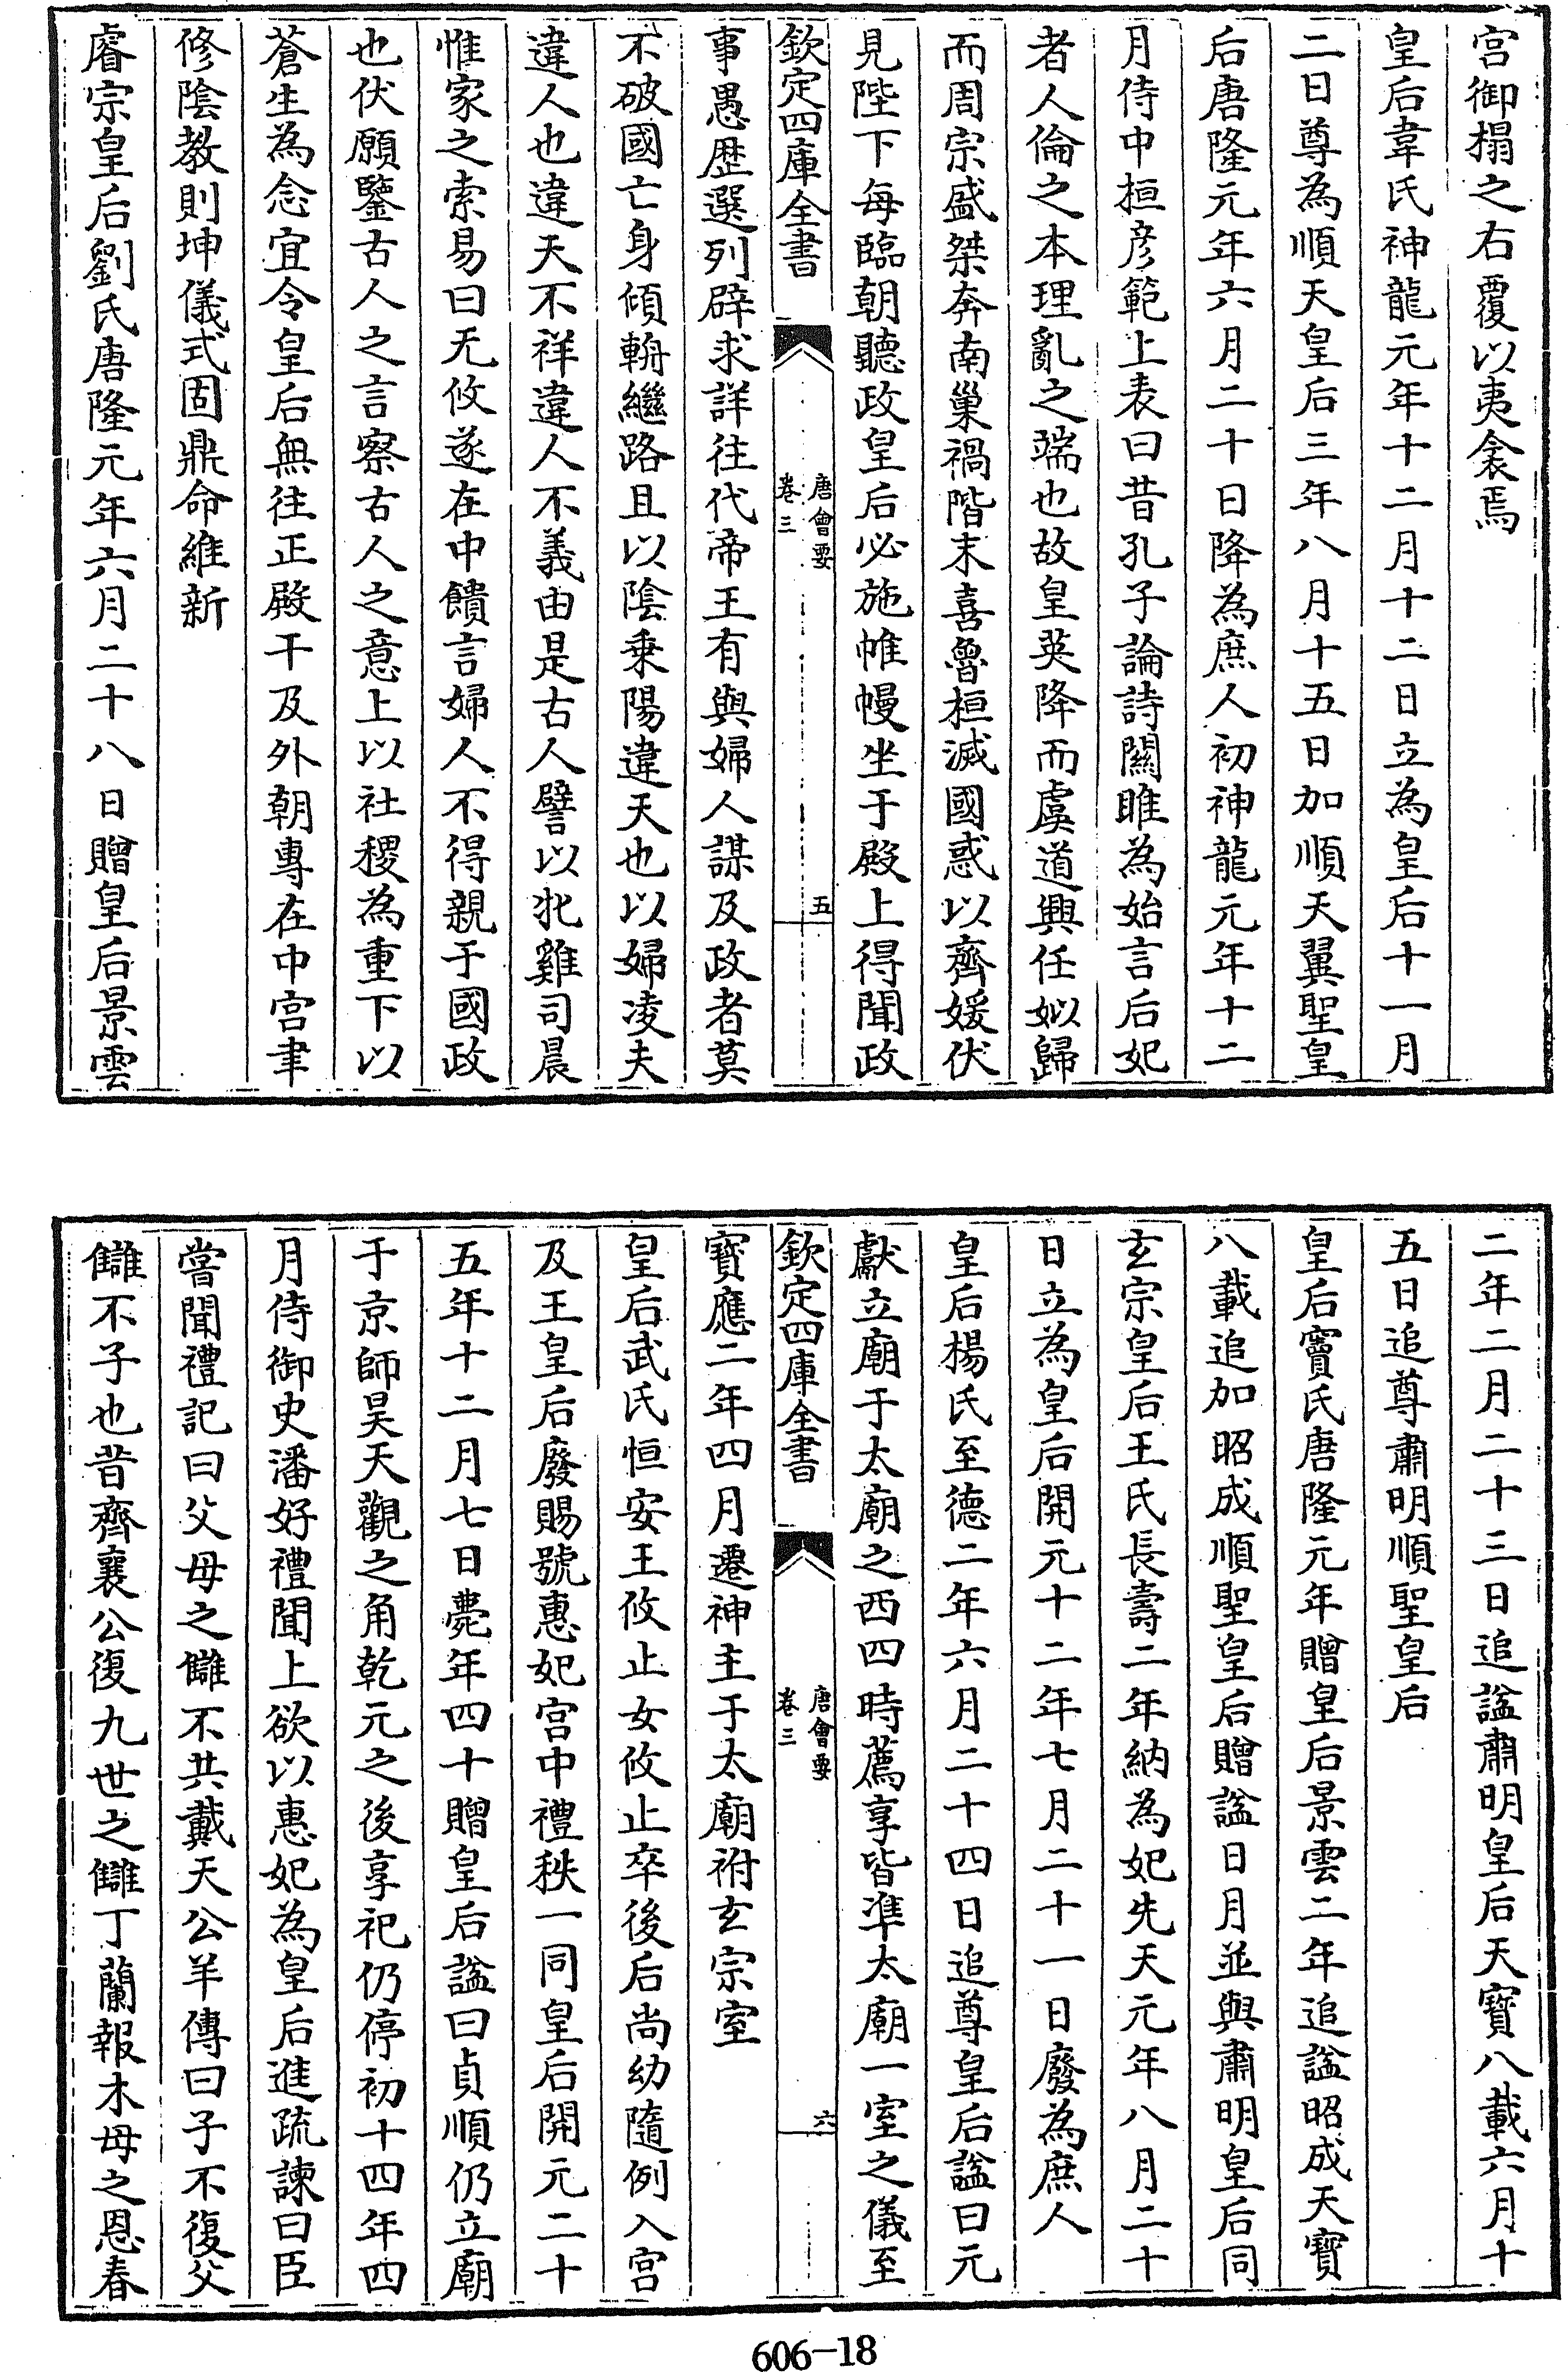 宫御榻之右覆以夷衾焉
皇后韋氏神龍元年十二月十二日立為皇后十一月
二日尊為順天皇后三年八月十五日加順天翼聖皇
后唐隆元年六月二十日降為庶人初神龍元年十二
月侍中桓彦範上表曰昔孔子論詩關雎為始言后妃
者人倫之本理亂之端也故皇英降而虞道興任姒歸
而周宗盛桀奔南巢禍階末喜魯桓滅國惑以齊媛伏
見陛下每臨朝聽政皇后必施帷幔坐于殿上得聞政
欽定四庫全書
唐會要
卷三
五
事愚歴選列辟求詳往代帝王有與婦人謀及政者莫
不破國亡身傾輈繼路且以陰乗陽違天也以婦凌夫
違人也違天不祥違人不義由是古人譬以牝雞司晨
惟家之索易曰无攸遂在中饋言婦人不得親于國政
也伏願鑒古人之言察古人之意上以社稷為重下以
蒼生為念宜令皇后無往正殿干及外朝專在中宫聿
修陰教則坤儀式固鼎命維新
睿宗皇后劉氏唐隆元年六月二十八日贈皇后景雲
二年二月二十三日追諡肅明皇后天寳八載六月十
五日追尊肅明順聖皇后
皇后竇氏唐隆元年贈皇后景雲二年追諡昭成天寳
八載追加昭成順聖皇后贈諡日月並與肅明皇后同
玄宗皇后王氏長壽二年納為妃先天元年八月二十
日立為皇后開元十二年七月二十一日廢為庶人
皇后楊氏至德二年六月二十四日追尊皇后諡曰元
獻立廟于太廟之西四時薦享皆凖太廟一室之儀至
欽定四庫全書
唐會要
卷三
六
寳應二年四月遷神主于太廟祔玄宗室
皇后武氏恒安王攸止女攸止卒後后尚幼隨例入宫
及王皇后廢賜號惠妃宫中禮秩一同皇后開元二十
五年十二月七日薨年四十贈皇后諡曰貞順仍立廟
于京師昊天觀之角乾元之後享祀仍停初十四年四
月侍御史潘好禮聞上欲以惠妃為皇后進疏諫曰臣
嘗聞禮記曰父母之讎不共戴天公羊傳曰子不復父
讎不子也昔齊襄公復九世之讎丁蘭報木母之恩春
606-18